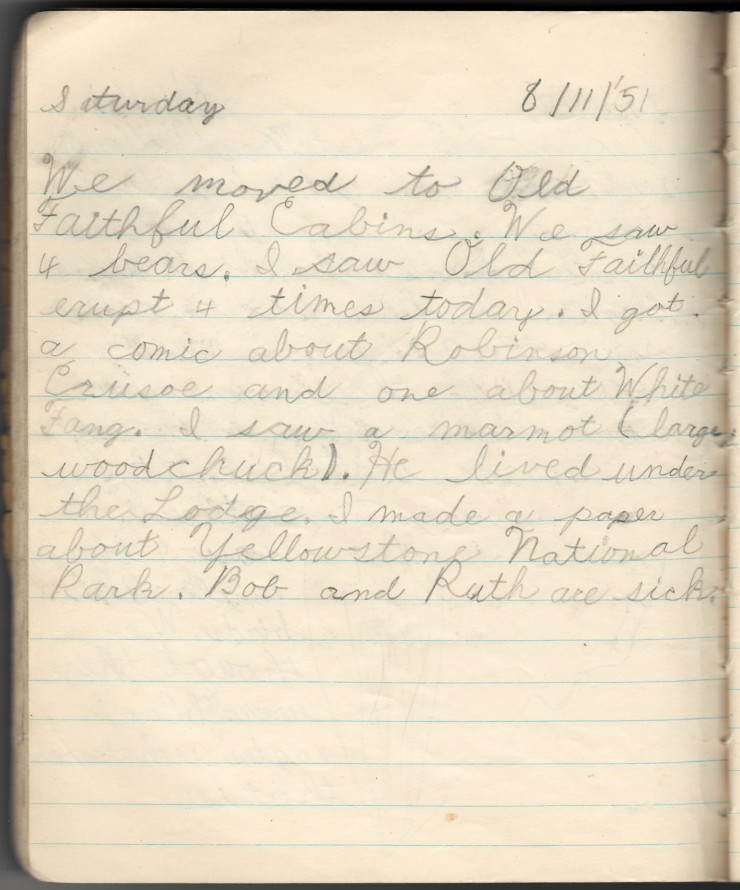 Saturday 8/11/'51
We moved to Old
Faithful Cabins. We saw
4 bears. I saw Old Faithful
erupt 4 times today. I got
a comic about Robinson
Crusoe and one about White
Fang. I saw a marmot (large
woodchuck). He lived under
the Lodge. I made a paper
about Yellowstone National
Park. Bob and Ruth are sick.